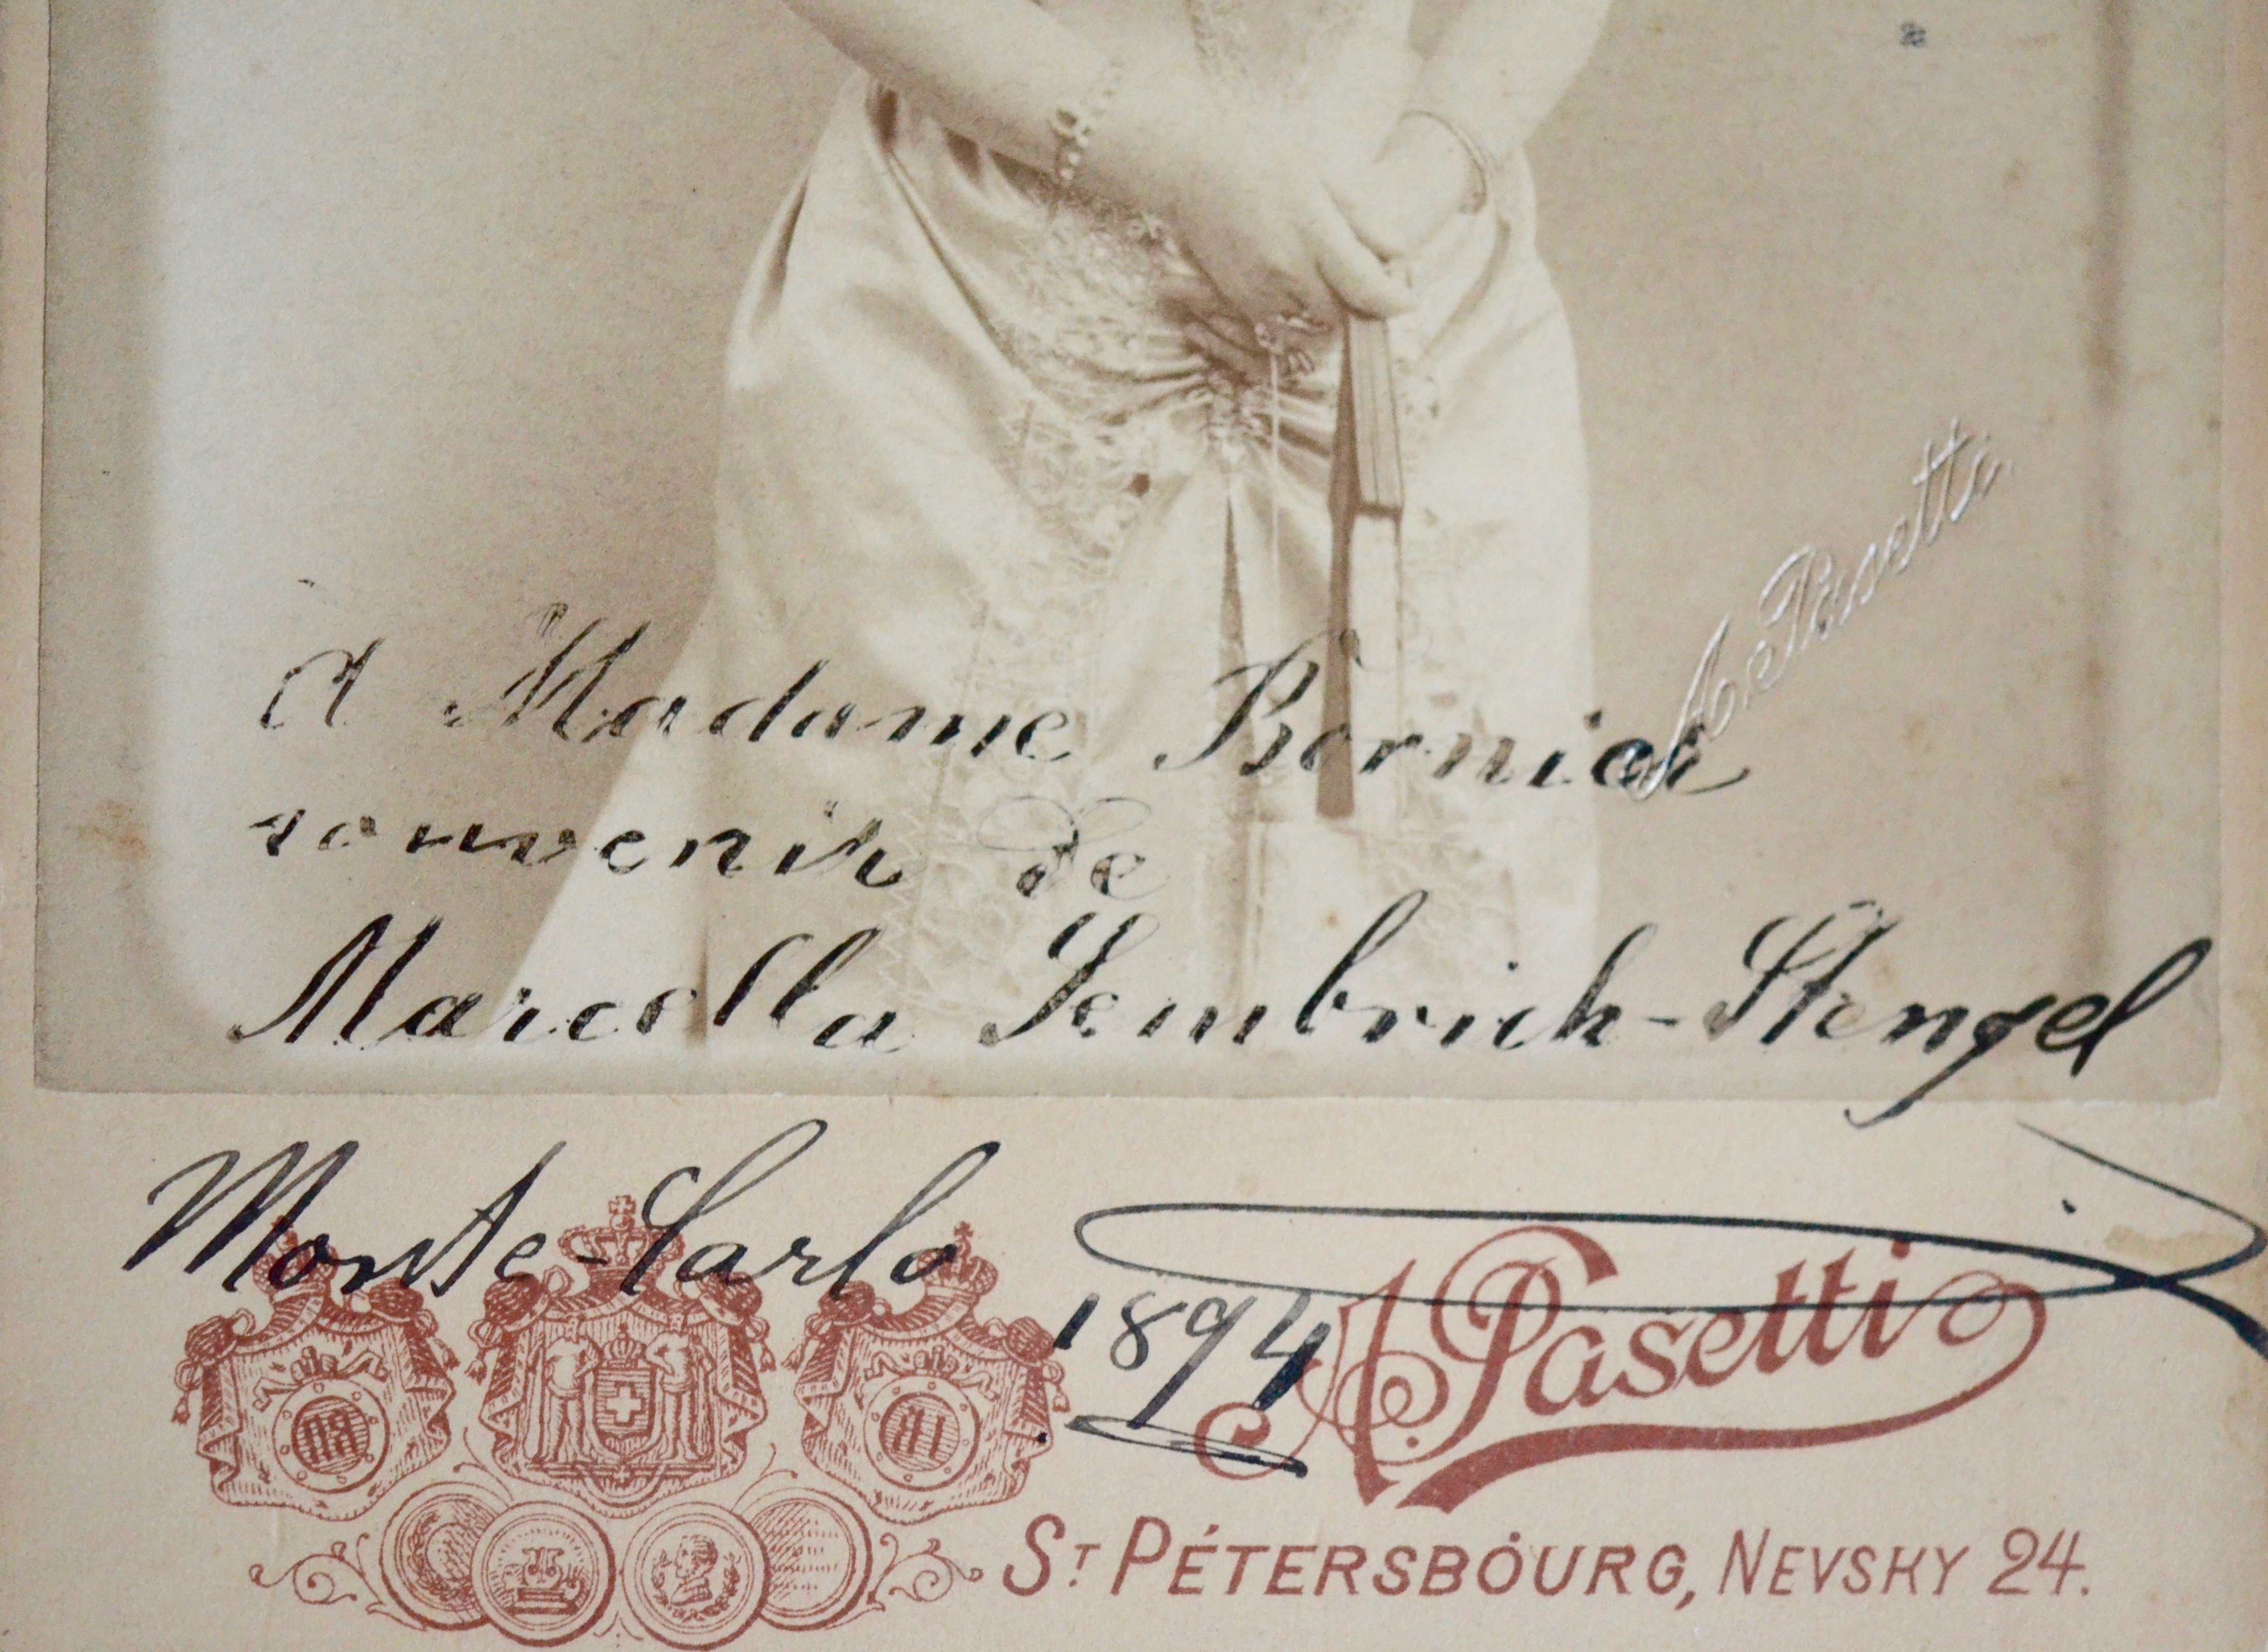 A. Pasetti
A Madame Bornier
souvenir de
Marcella Sembrich-Stengel
Monte-Carlo
1894
A Pasetti
ST PÉTERSBOURG, NEVSKY 24.